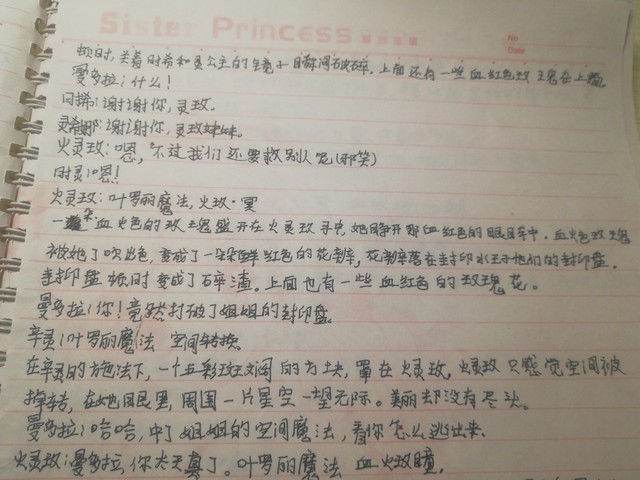 Sister Princess
No
Date
顿时,关着时希和灵公主的笼 目称间破碎,上面还有一些血红色玫瑰在上
曼多拉:什么!
时希:谢谢你,灵玫。
灵希娜:谢谢你,灵玫妹妹。
火灵玫:嗯,不过我们还要救别人呢(邪笑)
时灵:嗯!
火灵玫:叶罗丽魔法,火玫·冥
一朵血火色的玫瑰盛开在火灵玫手中,她睁开那血红色的眼目。血火色玫瑰
被她了吹出色,变成了一朵朵鲜红色的花刹,花刹落在封印水王子他们的封印盘。
封印盘顿时变成了碎渣。上面也有一些血红色的玫瑰花。
曼多拉:你!竟然打破了姐姐的封印盘。
辛灵:叶罗丽魔法 空间转换。
在辛灵的施法下,一个五彩斑斓的方块,罩在火灵玫,火灵玫只感觉空间被
掉转,在她眼里,周围一片星空一望无际。美丽却没有尽头。
曼多拉:哈哈,中了姐姐的空间魔法,看你怎么逃出来。
火灵玫:曼多拉,你太天真了。叶罗丽魔法 血火玫瞳。